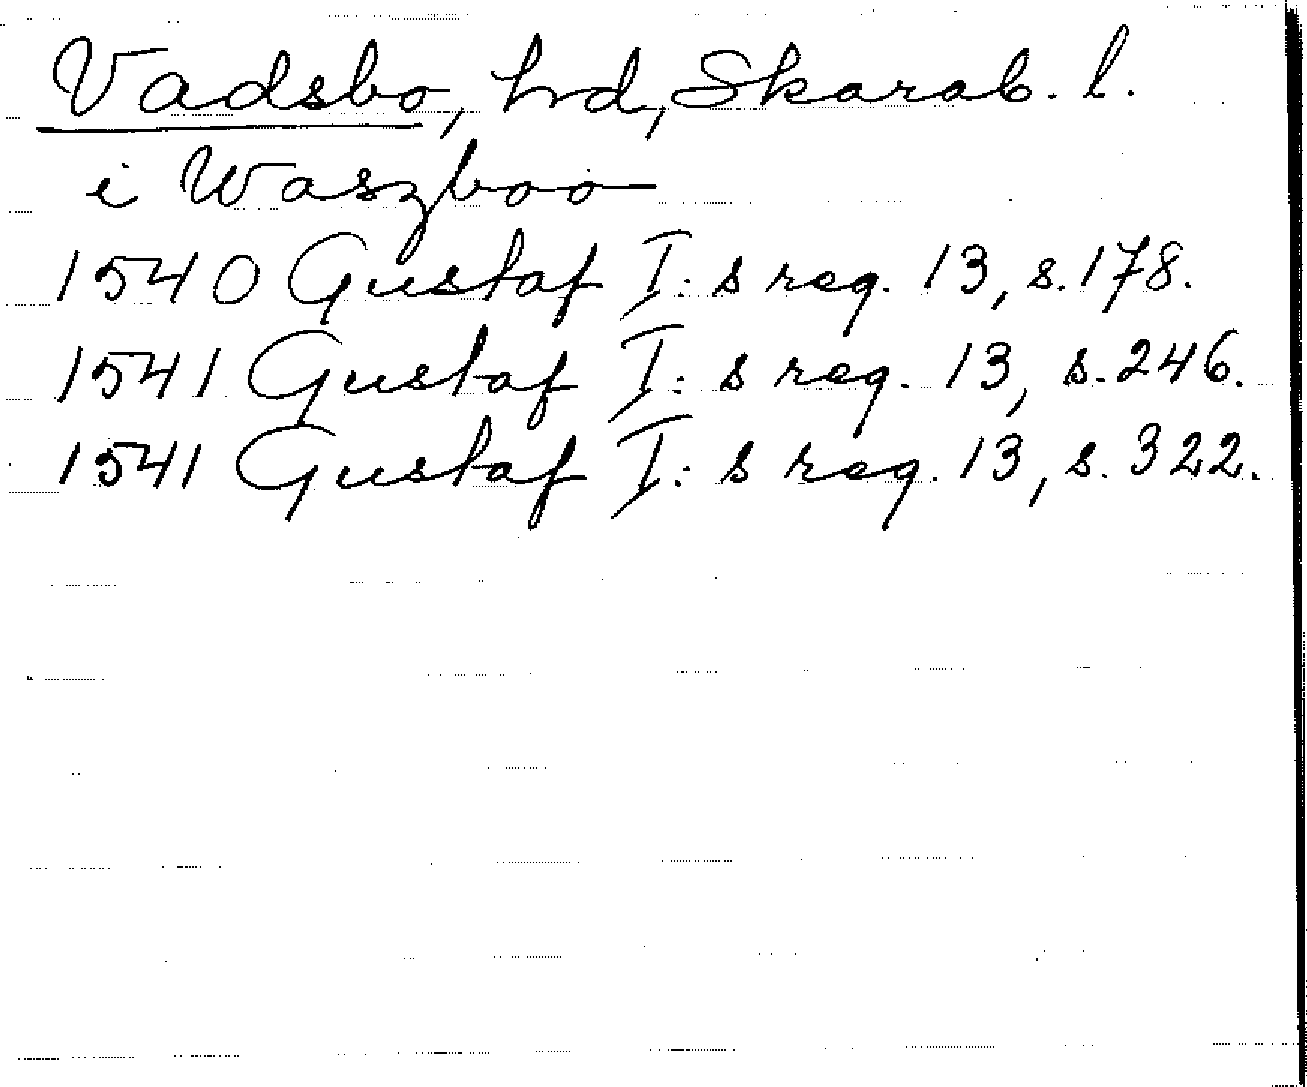 Vadsbo, hd, Skarab. l.
i Waszboo
1540 Gustaf I: s reg. 13, s. 178.
1541 Gustaf I: s reg. 13, s. 246.
1541 Gustaf I: s reg. 13, s. 322.